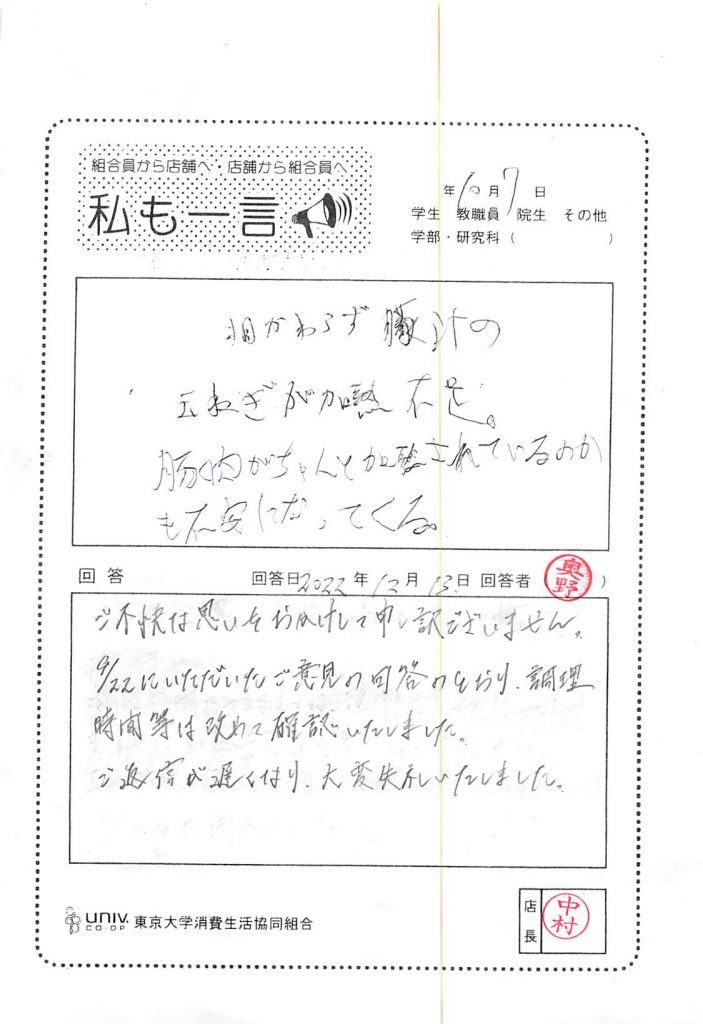 組合員から店舗へ・店舗から組合員へ
私も一言
年 10 月 7 日
学生 教職員 院生 その他
学部・研究科（ ）
相かわらず豚汁の
玉ねぎが加熱不足。
豚肉がちゃんと加熱されているのか
も不安になってくる。
回答 回答日 2022 年 12 月 13 日 回答者 奥野 ）
ご不快な思いをおかけして申し訳ございません。
9/22にいただいたご意見の回答のとおり、調理
時間等は改めて確認いたしました。
ご返信が遅くなり、大変失礼いたしました。
UNIV. CO-OP 東京大学消費生活協同組合
店長 中村